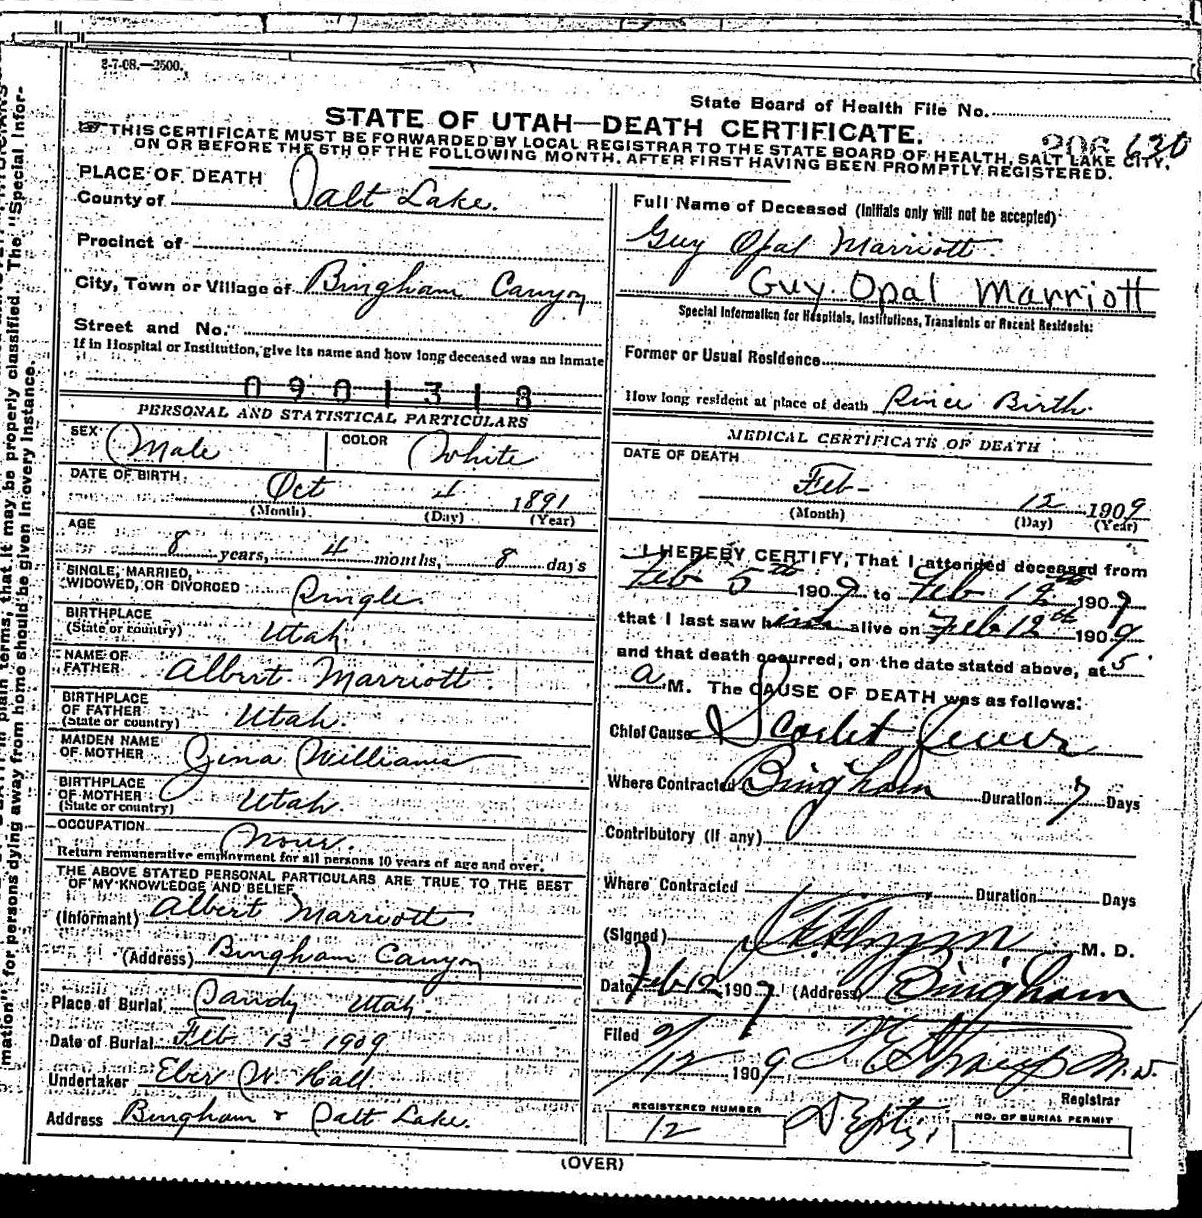 8-7-08.—2500.
State Board of Health File No.
STATE OF UTAH—DEATH CERTIFICATE.
206 630
THIS CERTIFICATE MUST BE FORWARDED BY LOCAL REGISTRAR TO THE STATE BOARD OF HEALTH, SALT LAKE CITY,
ON OR BEFORE THE 5TH OF THE FOLLOWING MONTH, AFTER FIRST HAVING BEEN PROMPTLY REGISTERED.
PLACE OF DEATH
County of Salt Lake.
Precinct of
City, Town or Village of Bingham Canyon
Street and No.
If in Hospital or Institution, give its name and how long deceased was an inmate
0901318
PERSONAL AND STATISTICAL PARTICULARS
SEX Male COLOR White
DATE OF BIRTH Oct 4 1891
(Month) (Day) (Year)
AGE
8 years, 4 months, 8 days
SINGLE, MARRIED,
WIDOWED, OR DIVORCED Single.
BIRTHPLACE
(State or country) Utah
NAME OF
FATHER Albert Marriott.
BIRTHPLACE
OF FATHER
(State or country) Utah.
MAIDEN NAME
OF MOTHER Zina Williams
BIRTHPLACE
OF MOTHER
(State or country) Utah.
OCCUPATION None.
Return remunerative employment for all persons 10 years of age and over.
THE ABOVE STATED PERSONAL PARTICULARS ARE TRUE TO THE BEST
OF MY KNOWLEDGE AND BELIEF
(Informant) Albert Marriott
(Address) Bingham Canyon
Place of Burial Sandy Utah.
Date of Burial Feb 13-1909
Undertaker Eber W. Hall.
Address Bingham & Salt Lake.
Full Name of Deceased (Initials only will not be accepted)
Guy Opal Marriott.
Guy Opal Marriott
Special Information for Hospitals, Institutions, Transients or Recent Residents:
Former or Usual Residence
How long resident at place of death Since Birth.
MEDICAL CERTIFICATE OF DEATH
DATE OF DEATH
Feb- 12 1909
(Month) (Day) (Year)
I HEREBY CERTIFY, That I attended deceased from
Feb 5th 1909 to Feb 12th 1909
that I last saw him alive on Feb 12th 1909
and that death occurred, on the date stated above, at 5
a M. The CAUSE OF DEATH was as follows:
Chief Cause Scarlet Fever
Where Contracted Bingham Duration 7 Days
Contributory (if any)
Where Contracted Duration Days
(Signed) M. D.
Date Feb 12 1909 (Address) Bingham
Filed 2/12 1909 M.D.
Registrar
REGISTERED NUMBER
12
Depty.
NO. OF BURIAL PERMIT
(OVER)
mation" for persons dying away from home should be given in every instance.
in plain terms, that it may be properly classified. The "Special Infor-